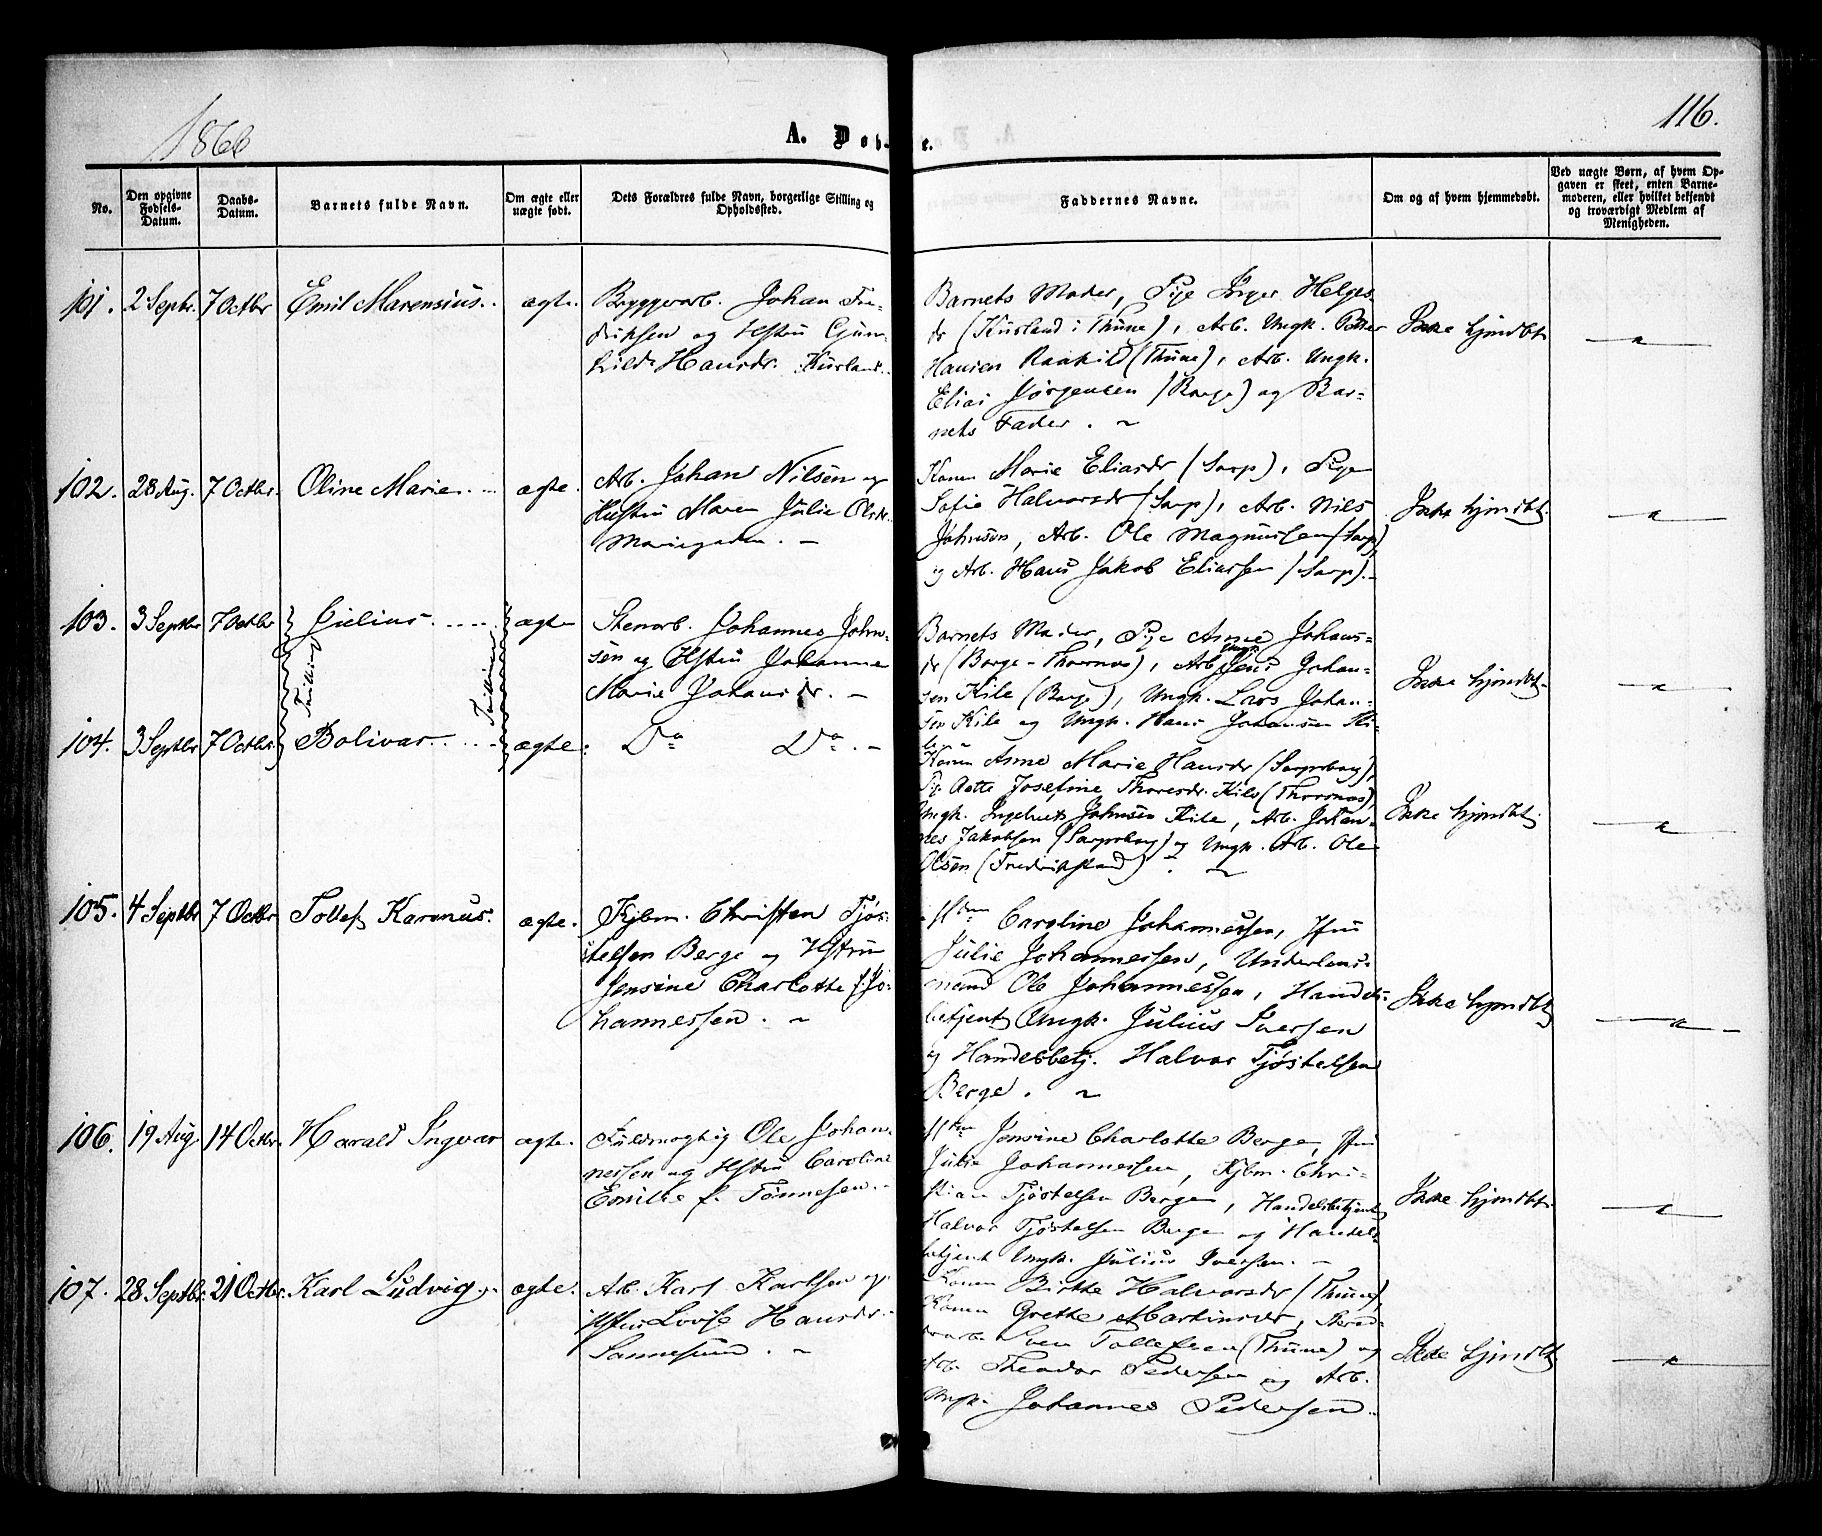 1866
116.
A. Dob-
e.
No.
Den opgivne Fødsels-Datum.
Daabs-Datum.
Barnets fulde Navn.
Om ægte eller uægte født.
Dets Forældres fulde Navn, borgerlige Stilling og Opholdssted.
Faddernes Navne.
Om og af hvem hjemmedøbt.
Ved uægte Børn, af hvem Opgaven er skeet, enten Barnemoderen, eller hvilket bekjendt og troværdigt Medlem af Menigheden.
101. 2 Septbr. 7 Octbr Emil Marensius. ægte.
Bryggerarb. Johan Fre-
driksen og Hstru Gun-
hild Hansdr. Kurland.
Barnets Moder, Pige Inger Helges-
dr (Kurland i Thune), Arb. Ungk. Peter
Hansen Raakil (Thune), Arb. Ungk.
Elias Jørgensen (Borge) og Bar-
nets Fader.
Ikke hjmdbt.
102. 28 Aug. 7 Octbr. Oline Marie. ægte.
Arb. Johan Nilsen og
Hustru Maren Julie Olsdr.
Konen Marie Eliasdr (Sarp), Pige
Sofie Halvorsdr (Sarp), Arb. Nils
Johnsen, Arb. Ole Magnussen (Sarp)
og Arb. Hans Jakob Eliassen (Sarp).
Ikke hjmdbt.
103. 3 Septbr 7 Octbr Julius ægte
Tvilling
Tvillinger
Stenarb. Johannes John-
sen og Hstru Johanne
Marie Johansdr.
Barnets Moder, Pige Anne Johans-
dr (Borge - Thorsnæs), Arb. Ungk. Jens Johan-
sen Kile (Borge), Ungk. Lars Johan-
sen Kile og Ungk. Hans Johansen Ki-
le
Ikke hjmdbt.
104. 3 Septbr 7 Octbr. Bolivar ægte.
Do Do.
Konen Anne Marie Hansdr (Sarpsborg),
Pg. Aette Josefine Thoresdr. Kile (Thorsnæs),
Ungk. Ingebret Johnsen Kile, Arb. Johan-
nes Jakobsen (Sarpsborg) og Ungk. Arb. Ole
Olsen (Fredrikstad).
Ikke hjmdbt.
105. 4 Septbr 7 Octbr Tollef Karenus. ægte.
Kjbm. Christen Tjøs-
telsen Berge og Hstru
Jensine Charlotte f. Jo-
hannessen.
Caroline Johannessen, Jfru
Julie Johannessen, Underlens-
mand Ole Johannessen, Handels-
betjent Ungk. Julius Iversen
og Handelsbetj. Halvor Tjøstelsen
Berge.
Ikke hjmdbt.
106. 19 Aug. 14 Octbr. Harald Ingvar ægte.
Fuldmægtig Ole Johan-
nessen og Hstru Caroline
Emilie f. Tønnesen.
Jensine Charlotte Berge, Jfru
Julie Johannessen, Kjbm. Chri-
stian Tjøstelsen Berge, Handelsbetjent
Halvor Tjøstelsen Berge og Handels-
betjent Ungk. Julius Iversen.
Ikke hjmdbt.
107. 28 Septbr. 21 Octbr. Karl Ludvig ægte.
Arb. Karl Karlsen og
Hstru Lovise Hansdr.
Sannesund.
Konen Birthe Halvorsdr (Thune),
Konen Grethe Martinsdr,
Sven Tollefsen (Thune) og
Arb. Theodor Pedersen og Arb.
Ungk. Johannes Pedersen.
Ikke hjmdbt.